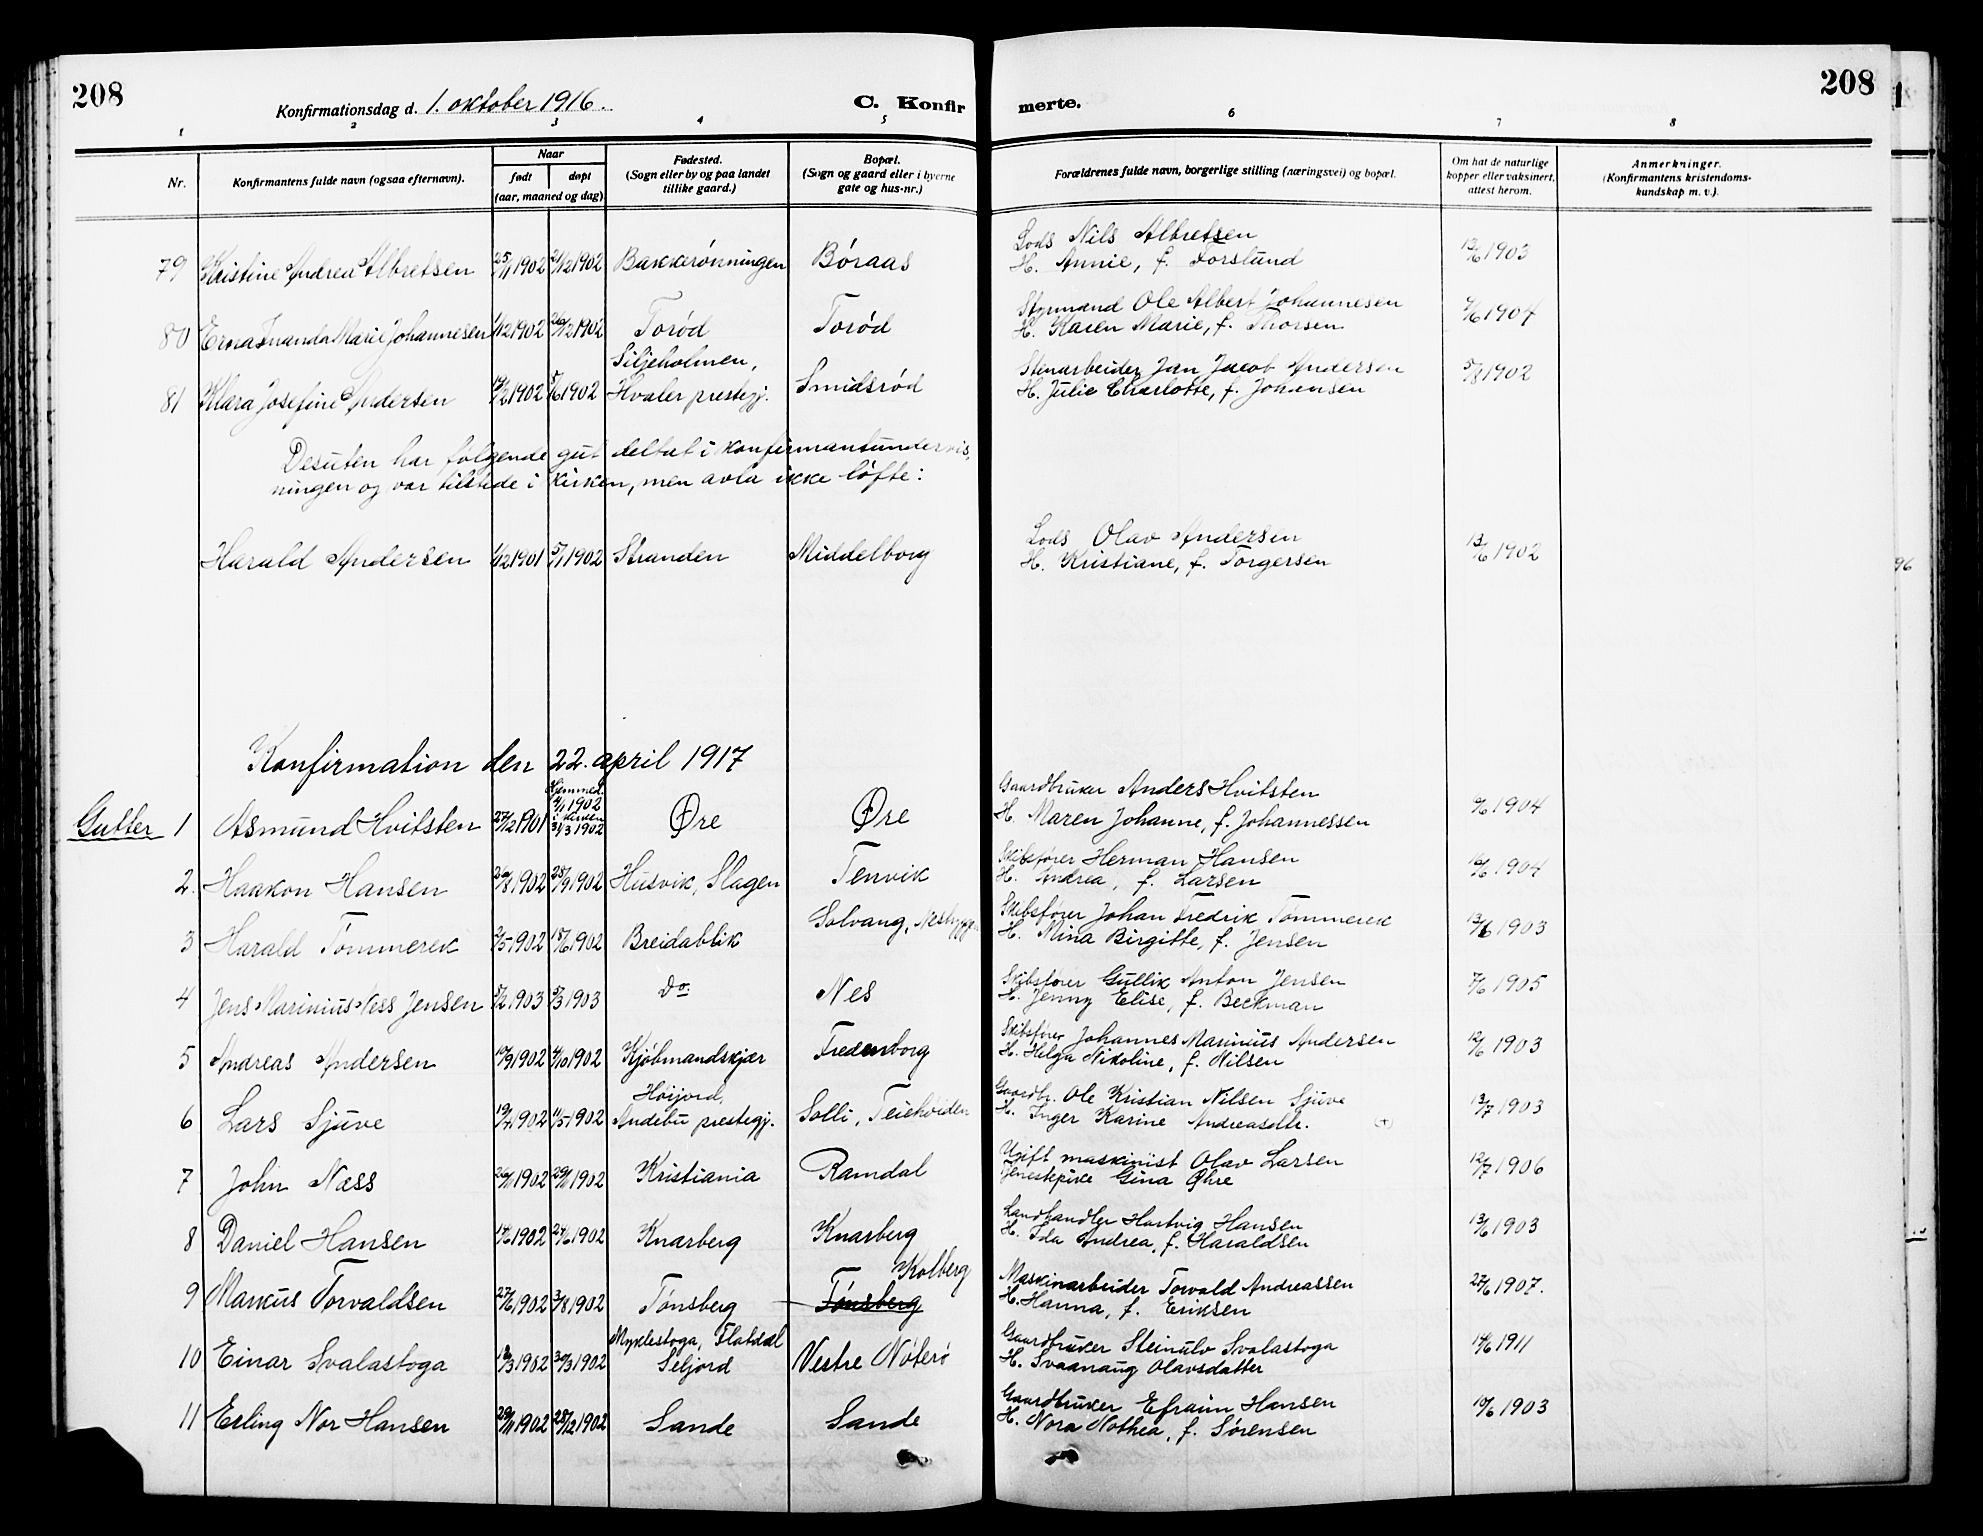 208
208
Konfirmationsdag d. 1. oktober 1916.
C. Konfir
merte.
1 2 3 4 5 6 7 8
Nr.
Konfirmantens fulde navn (ogsaa efternavn).
Naar
født døpt
(aar, maaned og dag)
Fødested.
(Sogn eller by og paa landet
tillike gaard.)
Bopæl.
(Sogn og gaard eller i byerne
gate og hus-nr.)
Forældrenes fulde navn, borgerlige stilling (næringsvei) og bopæl.
Om hat de naturlige
kopper eller vaksinert,
attest herom.
Anmerkninger.
(Konfirmantens kristendoms-
kundskap m. v.).
Lods Nils Albretsen
79 Kristine Andrea Albretsen 25/11 1902 21/12 1902 Bakkerønningen Børaas H. Annie, f. Forslund 13/6 1903
Styrmand Ole Albert Johannesen
80 Erna Inanda Marie Johannesen 1/12 1902 26/12 1902 Torød Torød H. Karen Marie, f. Thorsen 9/6 1904
Siljeholmen,
Stenarbeider Jan Jacob Andersen
81 Klara Josefine Andersen 19/2 1902 5/6 1902 Hvaler prestegj. Smidsrød H. Julie Charlotte, f. Johansen 5/8 1902
Desuten har følgende gut deltat i konfirmantundervis-
ningen og var tilstede i kirken, men avla ikke løfte:
Lods Olav Andersen
Harald Andersen 1/12 1901 5/1 1902 Stranden Middelborg H. Kristiane, f. Torgersen 13/6 1902
Konfirmation den 22. april 1917
Hjemmed.
1902
i kirken
31/3 1902
Gaardbruker Anders Hvitsten
Gutter 1 Asmund Hvitsten 27/12 1901 Øre Øre H. Maren Johanne, f. Johannessen 9/6 1904
Skibsfører Herman Hansen
2. Haakon Hansen 26/8 1902 28/9 1902 Husvik, Slagen Tenvik H. Andrea, f. Larsen 10/6 1904
Skibsfører Johan Fredrik Tømmerek
3 Harald Tømmerek 2/5 1902 18/6 1902 Breidablik Solvang, H. Mina Birgitte, f. Jensen 13/6 1903
Skibsfører Gullik Anton Jensen
4 Jens Marinius Ness Jensen 5/2 1903 5/3 1903 Do. Nes H. Jenny Elise, f. Beckman 7/6 1905
Skibsfører Johannes Marinius Andersen
5 Andreas Andersen 10/9 1902 4/10 1902 Kjøbmandskjær Fredenborg H. Helga Nikoline, f. Nilsen 12/6 1903
Høijord,
Gaardbr. Ole Kristian Nilsen Sjuve
6 Lars Sjuve 19/4 1902 11/5 1902 Andebu prestegj. Solli, Teiehøiden H. Inger Karine Andreasdtr. (+) 13/7 1903
Ugift maskinist Olav Larsen
7 John Næss 26/11 1902 29/11 1902 Kristiania Ramdal Tjenestepike Gina Øhre 12/7 1906
Landhandler Hartvig Hansen
8 Daniel Hansen 14/6 1902 24/6 1902 Knarberg Knarberg H. Ida Andrea, f. Haraldsen 13/6 1903
Kolberg
Maskinarbeider Torvald Andreassen
9 Markus Torvaldsen 27/6 1902 3/8 1902 Tønsberg Tønsberg H. Hanna, f. Eriksen 27/6 1907.
Myklestoga, Flatdal
Gaardbruker Steinulv Svalastoga
10 Einar Svalastoga 13/3 1902 30/3 1902 Seljord Vestre Nøterø H. Svaanaug Olavsdatter 14/6 1911
Gaardbruker Efraim Hansen
11 Erling Nor Hansen 29/11 1902 28/12 1902 Sande Sande H. Nora Nathea, f. Sørensen 10/6 1903
96